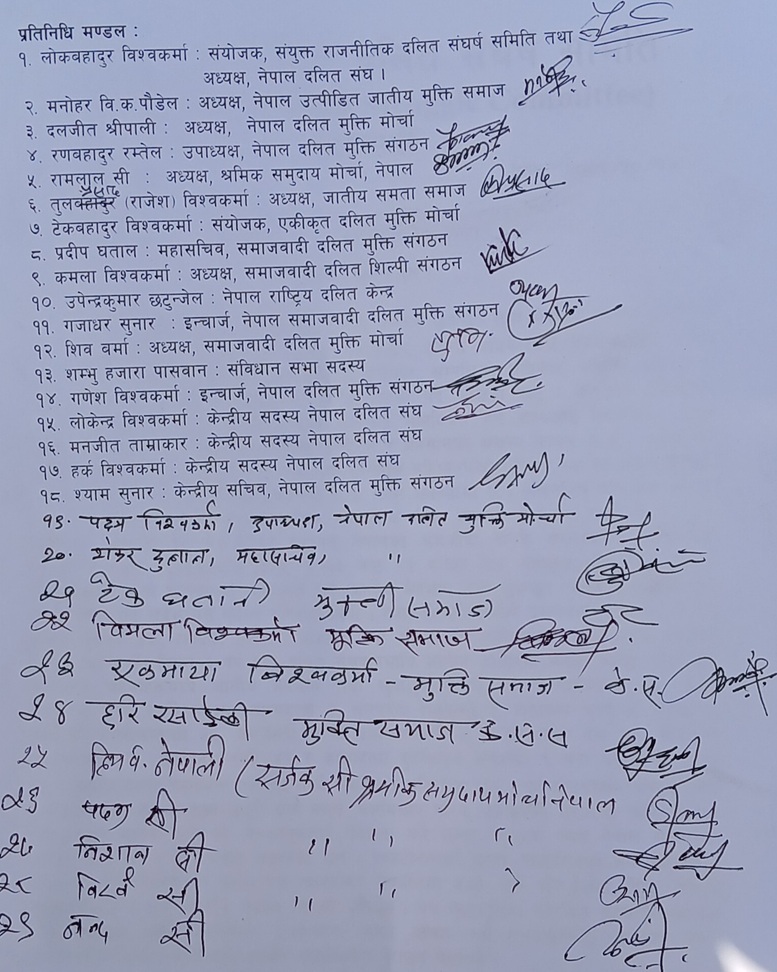 प्रतिनिधि मण्डल :
१. लोकबहादुर विश्वकर्मा : संयोजक, संयुक्त राजनीतिक दलित संघर्ष समिति तथा
अध्यक्ष, नेपाल दलित संघ ।
२. मनोहर वि.क.पौडेल : अध्यक्ष, नेपाल उत्पीडित जातीय मुक्ति समाज
३. दलजीत श्रीपाली : अध्यक्ष, नेपाल दलित मुक्ति मोर्चा
४. रणबहादुर रम्तेल : उपाध्यक्ष, नेपाल दलित मुक्ति संगठन
५. रामलाल सी : अध्यक्ष, श्रमिक समुदाय मोर्चा, नेपाल
प्रसाद
६. तुलबहादुर (राजेश) विश्वकर्मा : अध्यक्ष, जातीय समता समाज
७. टेकबहादुर विश्वकर्मा : संयोजक, एकीकृत दलित मुक्ति मोर्चा
८. प्रदीप घताल : महासचिव, समाजवादी दलित मुक्ति संगठन
९. कमला विश्वकर्मा : अध्यक्ष, समाजवादी दलित शिल्पी संगठन
१०. उपेन्द्रकुमार छटुन्जेल : नेपाल राष्ट्रिय दलित केन्द्र
११. गजाधर सुनार : इन्चार्ज, नेपाल समाजवादी दलित मुक्ति संगठन
१२. शिव वर्मा : अध्यक्ष, समाजवादी दलित मुक्ति मोर्चा
१३. शम्भु हजारा पासवान : संविधान सभा सदस्य
१४. गणेश विश्वकर्मा : इन्चार्ज, नेपाल दलित मुक्ति संगठन
१५. लोकेन्द्र विश्वकर्मा : केन्द्रीय सदस्य नेपाल दलित संघ
१६. मनजीत ताम्राकार : केन्द्रीय सदस्य नेपाल दलित संघ
१७. हर्क विश्वकर्मा : केन्द्रीय सदस्य नेपाल दलित संघ
१८. श्याम सुनार : केन्द्रीय सचिव, नेपाल दलित मुक्ति संगठन
१९. पदम विश्वकर्मा, उपाध्यक्ष, नेपाल दलित मुक्ति मोर्चा
२०. शंकर दुलाल, महासचिव, "
२१ टेकु घतानी मुक्ती (समाज)
२२ विमला विश्वकर्मा मुक्ति समाज
२३ एकमाया विश्वकर्मा - मुक्ति समाज - के.स.
२४ हरि रसाईली मुक्ति समाज के.स.स
२५ नेपाली (सर्जक सी श्रमीक समुदाय मोर्चा नेपाल
२६ पदम सी
२७ सी " " "
२८ सी " " "
२९ नन्द सी